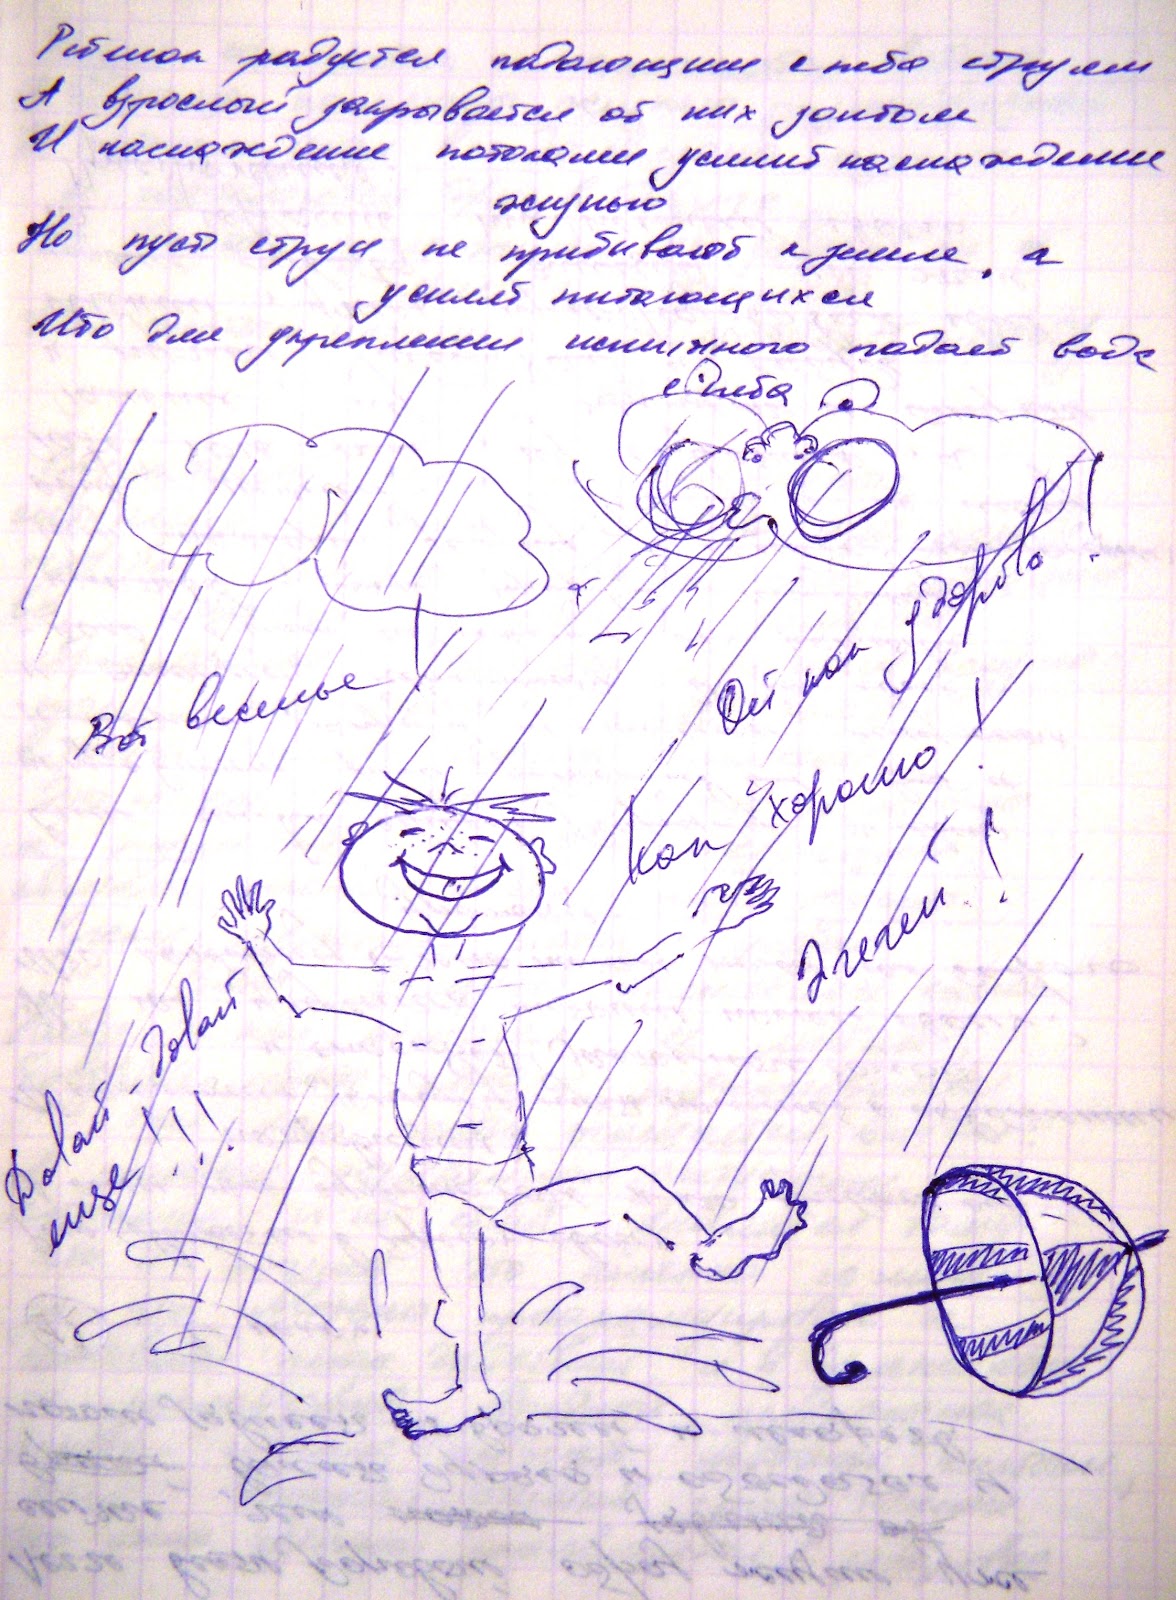 Ребенок радуется падающим с неба струям
А взрослый закрывается от них зонтом
И наслаждение потоками усилит наслаждение
жизнью
Но пусть струи не прибивают к земле, а
усилят питающихся
Что для укрепления истинного падает вода
с неба
Вот веселье!
Ой как здорово!
Как хорошо!
Эгегей!
Давай-давай
еще!!!